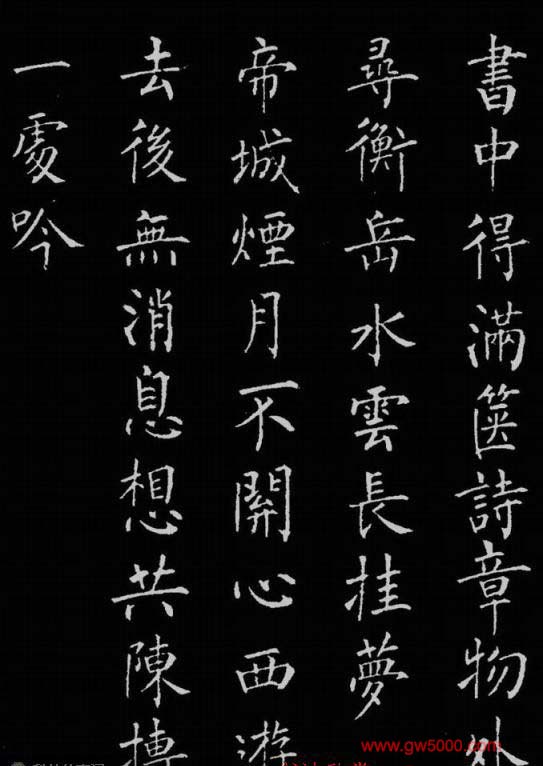 書中得滿篋詩章物外
尋衡岳水雲長挂夢
帝城煙月不關心西游
去後無消息想共陳摶
一處吟
www.gw5000.com